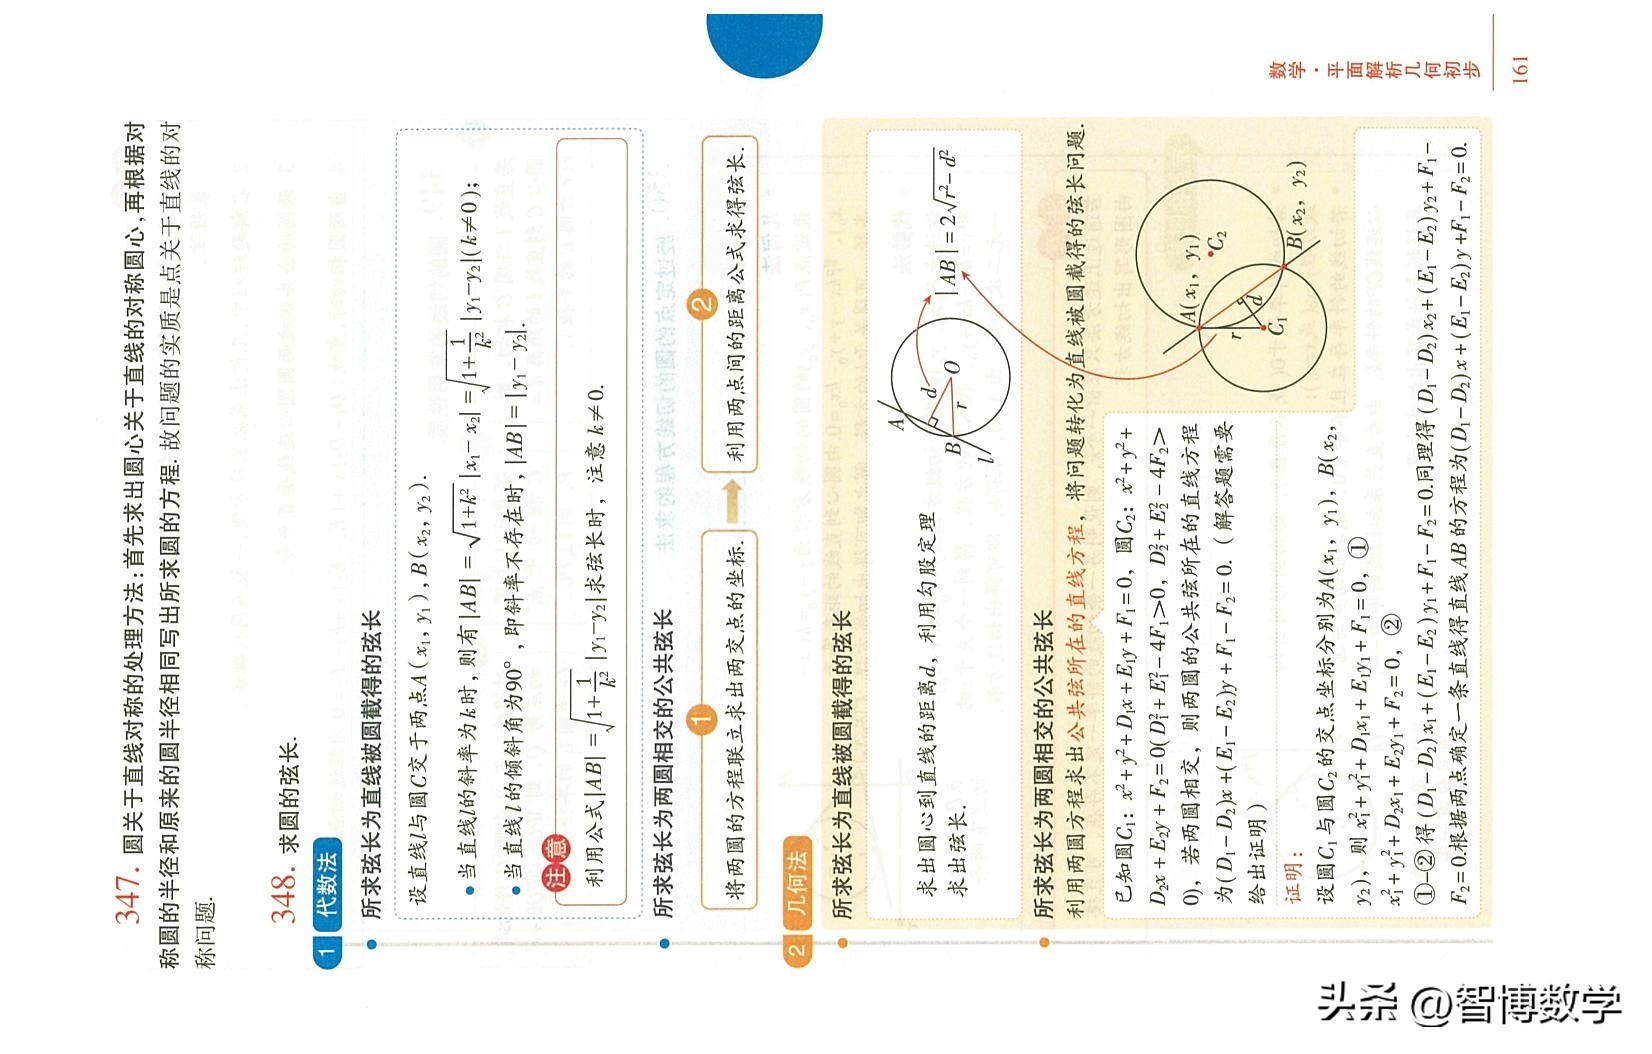 347. 圆关于直线对称的处理方法:首先求出圆心关于直线的对称圆心,再根据对
称圆的半径和原来的圆半径相同写出所求圆的方程. 故问题的实质是点关于直线的对
称问题.
348. 求圆的弦长.
1 代数法
所求弦长为直线被圆截得的弦长
设直线l与圆C交于两点A(x₁, y₁), B(x₂, y₂).
• 当直线l的斜率为k时, 则有|AB|=√(1+k²)|x₁-x₂|=√(1+1/k²)|y₁-y₂|(k≠0);
• 当直线l的倾斜角为90°, 即斜率不存在时, |AB|=|y₁-y₂|.
注意
利用公式|AB|=√(1+1/k²)|y₁-y₂|求弦长时, 注意k≠0.
所求弦长为两圆相交的公共弦长
1
将两圆的方程联立求出两交点的坐标.
2
利用两点间的距离公式求得弦长.
2 几何法
所求弦长为直线被圆截得的弦长
求出圆心到直线的距离d, 利用勾股定理
求出弦长.
A
B
l
d
r
O
|AB|=2√(r²-d²)
所求弦长为两圆相交的公共弦长
利用两圆方程求出公共弦所在的直线方程, 将问题转化为直线被圆截得的弦长问题.
已知圆C₁: x²+y²+D₁x+E₁y+F₁=0, 圆C₂: x²+y²+
D₂x+E₂y+F₂=0(D₁²+E₁²-4F₁>0, D₂²+E₂²-4F₂>
0), 若两圆相交, 则两圆的公共弦所在的直线方程
为(D₁-D₂)x+(E₁-E₂)y+F₁-F₂=0. (解答题需要
给出证明)
A(x₁, y₁)
C₂
B(x₂, y₂)
r
d
C₁
证明:
设圆C₁与圆C₂的交点坐标分别为A(x₁, y₁), B(x₂,
y₂), 则x₁²+y₁²+D₁x₁+E₁y₁+F₁=0, ①
x₁²+y₁²+D₂x₁+E₂y₁+F₂=0, ②
①-②得(D₁-D₂)x₁+(E₁-E₂)y₁+F₁-F₂=0.同理得(D₁-D₂)x₂+(E₁-E₂)y₂+F₁-
F₂=0.根据两点确定一条直线得直线AB的方程为(D₁-D₂)x+(E₁-E₂)y+F₁-F₂=0.
数学·平面解析几何初步
161
头条 @智博数学